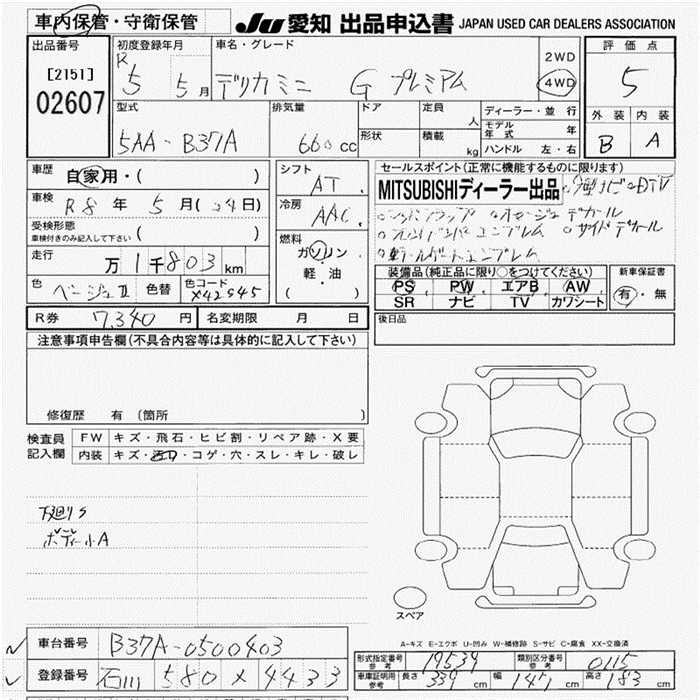 車内保管・守衛保管
JU 愛知 出品申込書 JAPAN USED CAR DEALERS ASSOCIATION
出品番号 初度登録年月 車名・グレード 評価点
[2151] R 5 5月 デリカミニ G プレミアム 2WD 4WD 5
02607
型式 排気量 ドア 定員 人 ディーラー・並行 外装 内装
5AA-B37A 660cc 形状 積載 kg モデル年式 年 B A
ハンドル 左・右
車歴 自家用・( )
シフト AT
セールスポイント(正常に機能するものに限ります)
MITSUBISHIディーラー出品
車検 R8年 5月(24日)
冷房 AAC
受検形態 車検付きのみ記入して下さい ( )
走行 万1千803km
燃料 ガソリン 軽・油 ( )
色 ベージュII 色替 色コード X42S45
装備品(純正品に限り○をつけてください) 新車保証書
PS PW エアB AW 有・無
SR ナビ TV カワシート
R券 7,340円 名変期限 月 日
後日品
注意事項申告欄(不具合内容等は具体的に記入して下さい)
修復歴 有 (箇所
検査員記入欄 FW キズ・飛石・ヒビ割・リペア跡・X要
内装 キズ・汚れ・コゲ・穴・スレ・キレ・破レ
下廻りS
ボディ小A
スペア
A-キズ E-エクボ U-凹み W-補修跡 S-サビ C-腐食 XX-交換済
車台番号 B37A-0500403
登録番号 石川 580 X 4433
形式指定番号 参考 19539 類別区分番号 参考 0115
車庫証明用 参考 長さ 339cm 幅 147cm 高さ 183cm